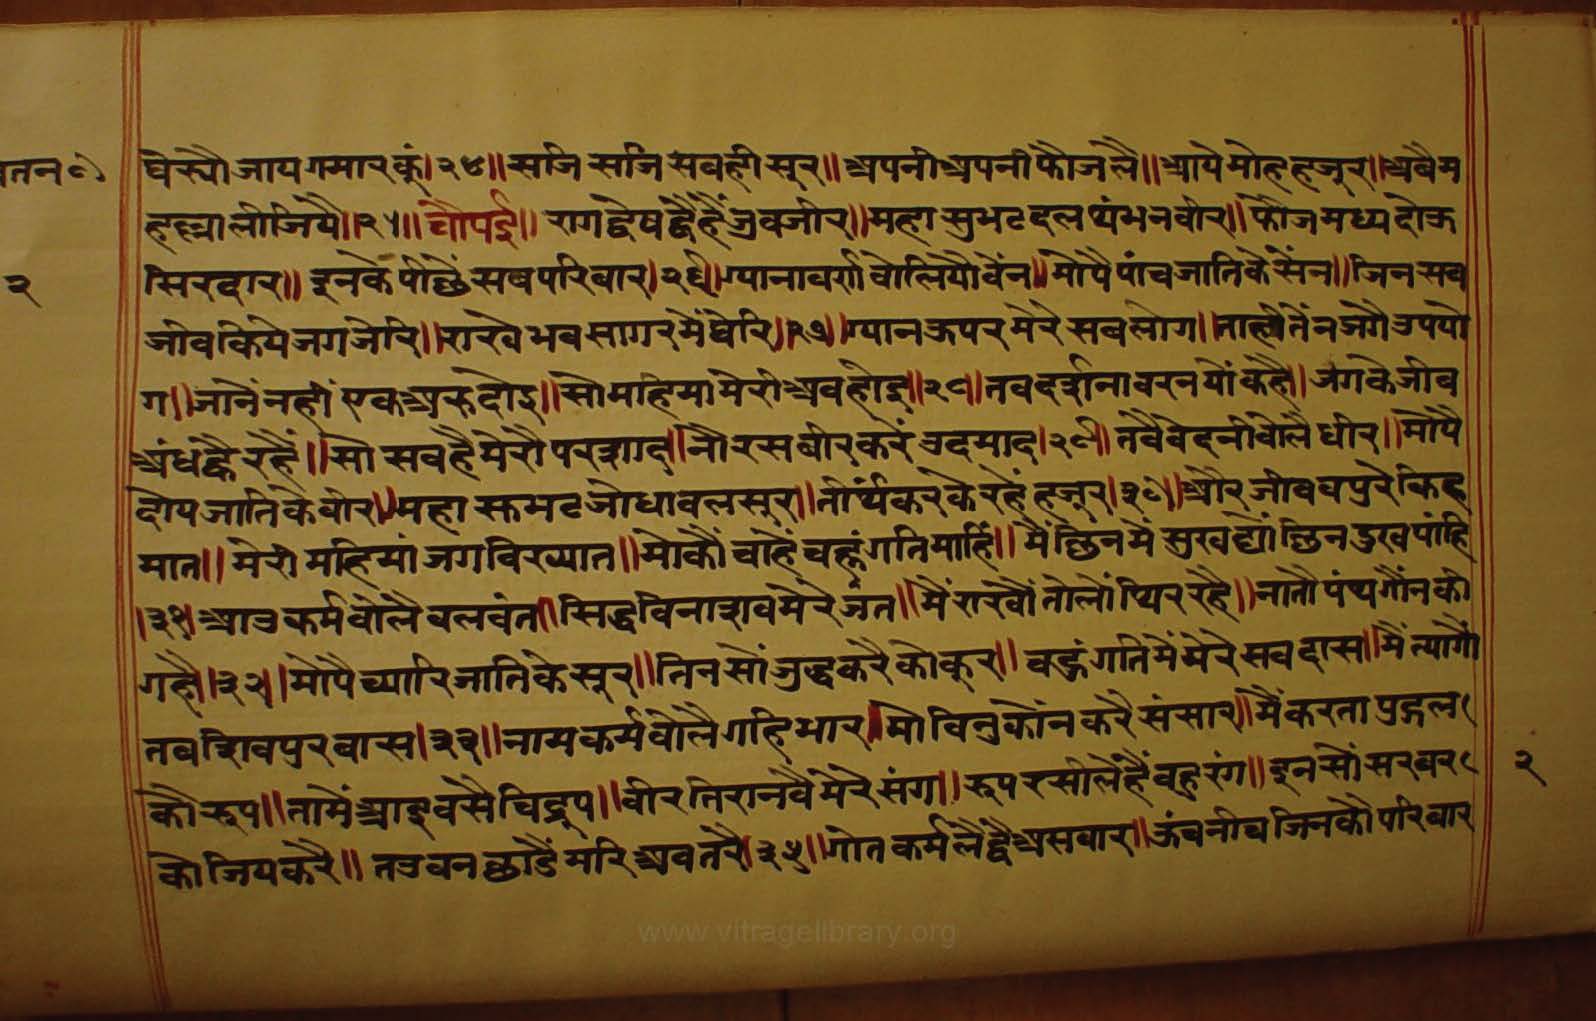 घेस्यौ जाय गमार कूं।२४॥ सजि सजि सबही सूर॥ अपनी अपनी फौज लै॥ आये मोह हजूर॥ अबै म
हल्ला लीजियै॥२५॥ चौपई॥ राग द्वेष द्वै हैं उवजीर॥ महा सुभट दल थंभन वीर॥ फौज मध्य दोऊ
२ सिरदार॥ इनके पीछें सब परिवार।२६॥ ग्यानावर्ण वोलियौ वेंन॥ मोपै पांच जाति के सेंन॥ जिन सव
जीव किये जग जेरि॥ राखे भव सागर में घेरि॥२७॥ ग्यान ऊपर मेरे सब लोग॥ ताही तें न जगै उपयो
ग॥ जानें नहीं एक अरु दोइ॥ सो महिमा मेरी अव होइ॥२८॥ तव दर्शनावरन यों कहै॥ जग के जीव
अंध ह्वै रहैं॥ सो सव है मेरौ परशाद॥ नौ रस वीर करें उदमाद।२९॥ तवै वेदनी वोलै धीर॥ मोपै
दोय जाति के वीर॥ महा सुभट जोधा वलसूर॥ तीर्थंकर के रहें हजूर।३०॥ और जीव वपुरे किह
मात॥ मेरी महिमां जग विख्यात॥ मोकौं चाहें चहूं गति मांहिं॥ मैं छिन में सुख द्यों छिन दुख पांहि
।३१। आउ कर्म वोलै वलवंत॥ सिद्ध विना शव मेरे जंत॥ मैं राखौं तोलों थिर रहै॥ नातौ पंथ गौंन कौ
गहै।३२॥ मोपै च्यारि जाति के सूर॥ तिन सों जुद्ध करै को कूर॥ चहुं गति में मेरे सव दास॥ मैं त्यागौं
तव शिवपुर वास।३३॥ नाम कर्म वोलै गहि भार॥ मो विनु कोंन करै संसार॥ मैं करता पुद्गल
कौ रूप॥ तामें आइ वसै चिद्रूप॥ वीर तिरानवै मेरे संग॥ रूप रसीले हैं वहु रंग॥ इन सों सरबर २
को जिय करै॥ तउ वन छाडै मरि अवतरै।३५॥ गोत कर्म लै द्वै असवार॥ ऊंच नीच जिनकौ परिवार